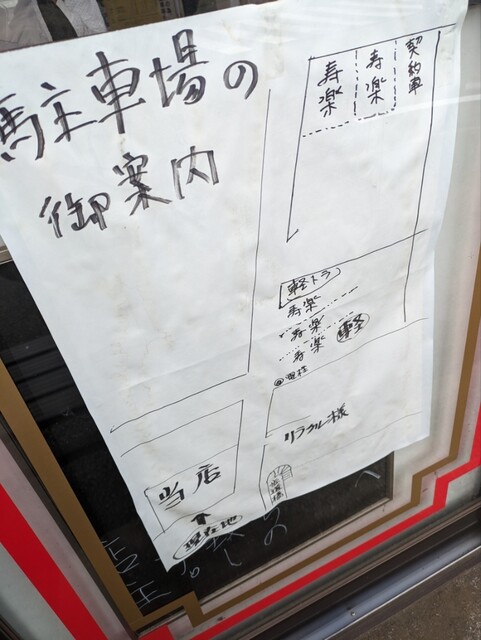 駐車場の
御案内
寿楽
寿楽
契約車
軽トラ
寿楽
寿楽
寿楽
軽
リラクル様
当店
↑
現在地